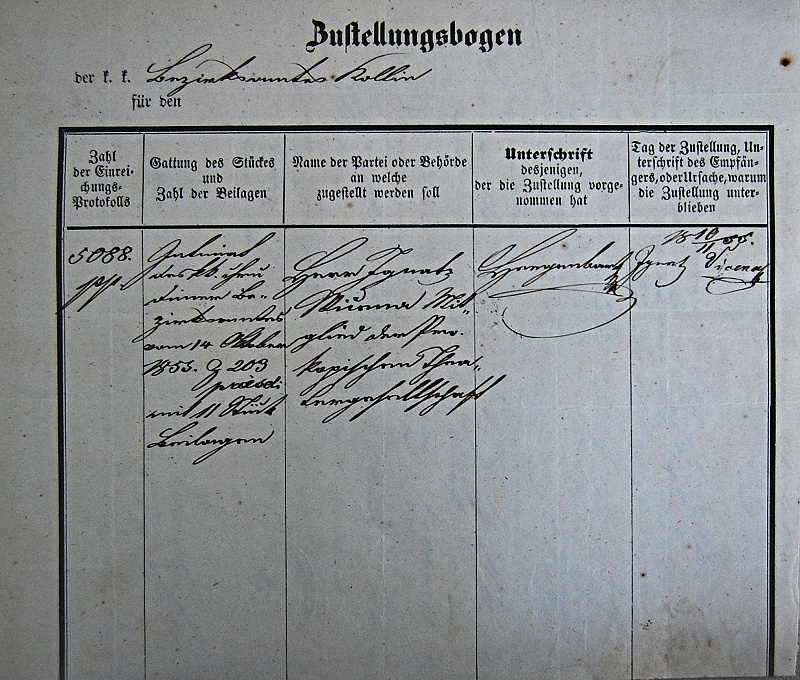 Zustellungsbogen
der k. k. Bezirksamtes Kollin
für den
Zahl
der Einrei-
chungs-
Protokolls
Gattung des Stückes
und
Zahl der Beilagen
Name der Partei oder Behörde
an welche
zugestellt werden soll
Unterschrift
desjenigen,
der die Zustellung vorge-
nommen hat
Tag der Zustellung, Un-
terschrift des Empfän-
gers, oder Ursache, warum
die Zustellung unter-
blieben
5088.
Intimat
des
Be-
zirksamtes
vom 14 Oktober
1855. Z 203
praesidi
mit 11 Stück
Beilagen
Herr Ignatz
Mit-
glied der Pro-
kopischen Thea-
tergesellschaft
18 10/11 55.
Ignatz